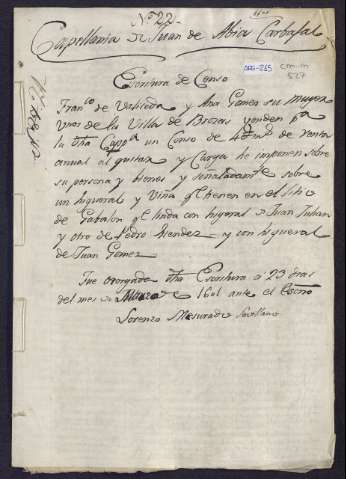 Nº 22
Capellania de Juan de Abia Carbajal
Escritura de Censo
Franco de Valbieda y Ana Gomez su muger
Vnos de la Villa de Brozas venden pa
la dha Cappa un Censo de de renta
annual al quitar y Carga qe imponen sobre
su persona y bienes y señaladamte sobre
un higueral y Viña qe tienen en el sitio
de qe linda con higueral de Juan
y otro de Pedro Mendez y con higueral
de Juan Gomez
Fue otorgada dha Escritura a 23 dias
del mes de Marzo de 1601 ante el Essno
Lorenzo